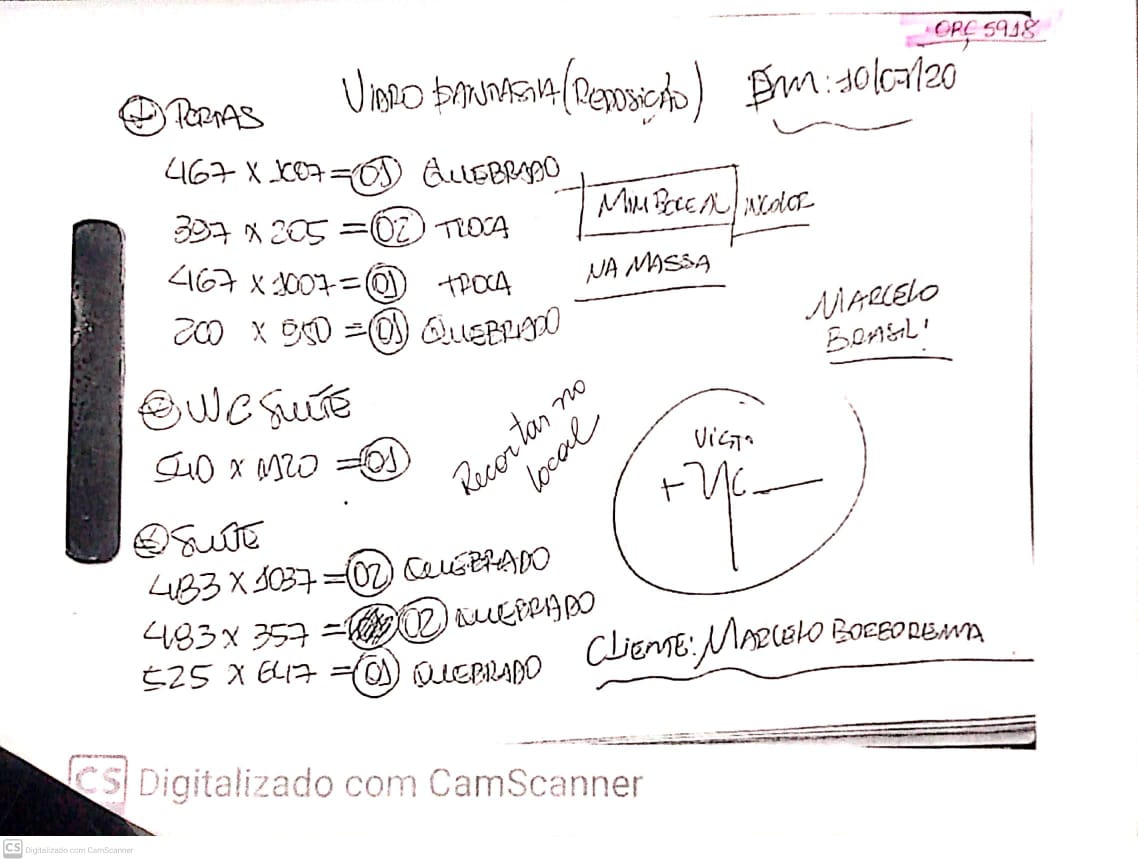 ORÇ 5918
VIDRO FANTASIA (REPOSIÇÃO) EM: 10/07/20
1 PORTAS
467 X 1007 = 01 QUEBRADO
397 X 205 = 02 TROCA
467 X 1007 = 01 TROCA
200 X 950 = 01 QUEBRADO
MINI BOREAL INCOLOR
NA MASSA
MARCELO
BRASIL!
2 WC SUÍTE
540 X 1120 = 01
Recortar no
local
VISTA
SUÍTE
483 X 1037 = 02 QUEBRADO
483 X 357 = 02 QUEBRADO
525 X 647 = 01 QUEBRADO
CLIENTE: MARCELO BORBOREMA
CS Digitalizado com CamScanner
CS Digitalizado com CamScanner